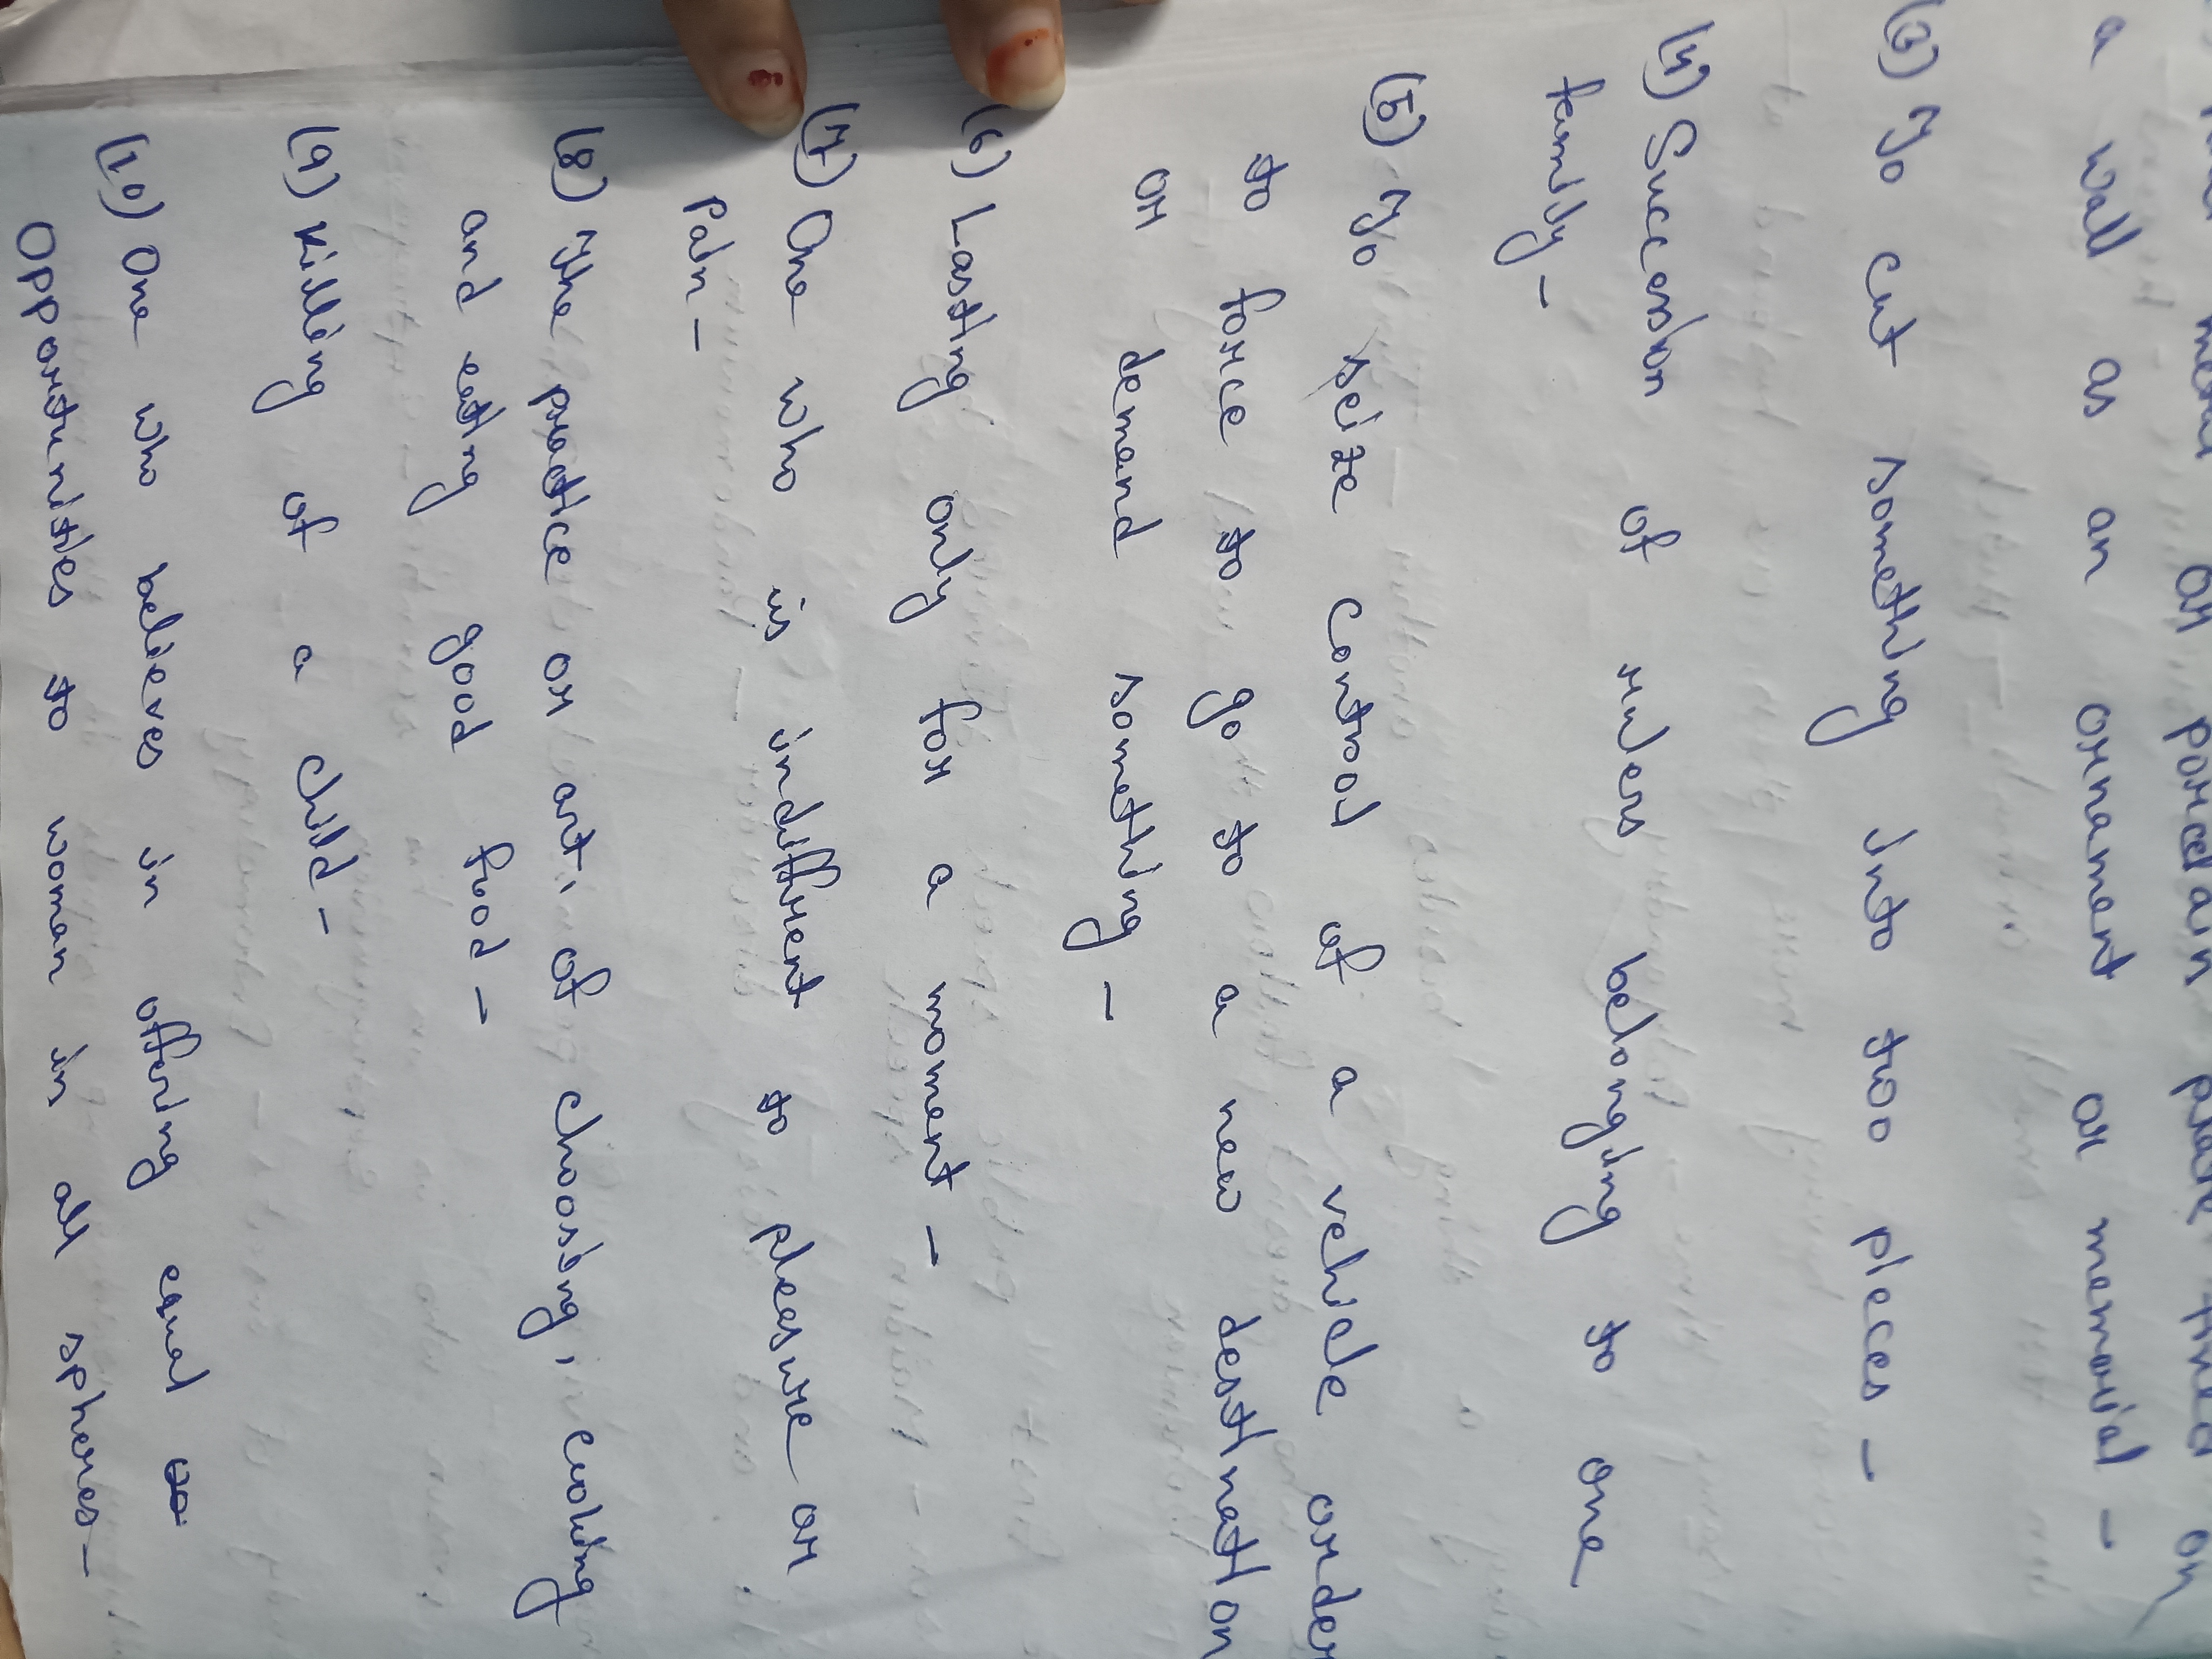 or porcelain plate fixed on
a wall as an ornament or memorial -
(3) To cut something into too pieces -
(4) Succession of rulers belonging to one
family -
(5) To seize control of a vehicle order
to force to go to a new destination
or demand something -
(6) Lasting only for a moment -
(7) One who is indiffrent to pleasure or
Pain -
(8) The practice or art, of choosing, cooking
and eating good food -
(9) Killing of a child -
(10) One who believes in offering equal
Opportunities to woman in all spheres -